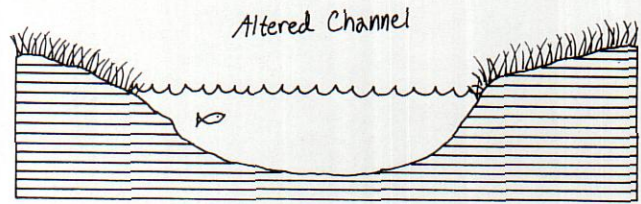 Altered Channel